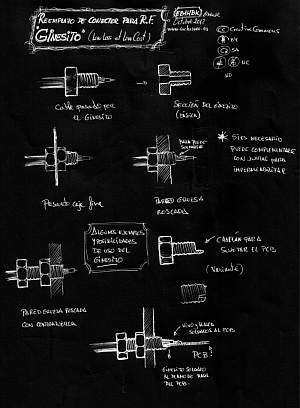 REEMPLAZO DE CONECTOR PARA R.F.
"GINESITO" (Low Loss at Low Cost)
EB4HBK
Octubre 2017
Creative Commons
BY
SA
NC
ND
Cable pasado por
EL GINESITO
SECCIÓN DEL GINESITO
(BÁSICA)
PARA PODER
SOLDARLE
* SI ES NECESARIO
PUEDE COMPLEMENTARSE
CON JUNTAS PARA
IMPERMEABILIZAR
Pasante caja fina
PARED GRUESA
ROSCADA
ALGUNOS EJEMPLOS
Y POSIBILIDADES
DE USO DEL
GINESITO
PARA
SUJETAR EL PCB
(Variante)
PARED GRUESA ROSCADA
CON CONTRATUERCA
VIVO Y MALLA
SOLDADOS AL PCB
PCB
GINESITO SOLDADO
AL PLANO DE MASA
DEL PCB